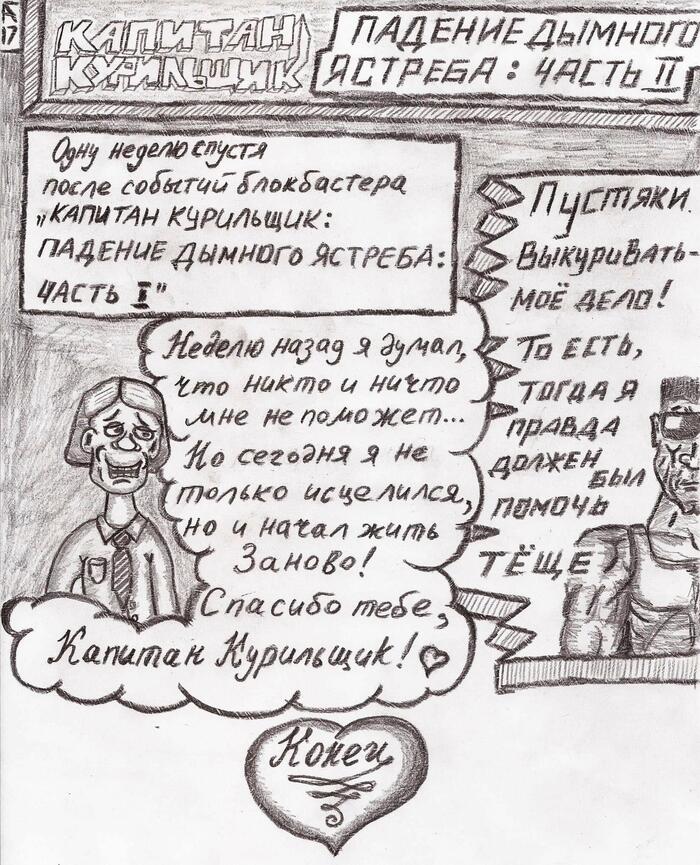 КАПИТАН
КУРИЛЬЩИК
ПАДЕНИЕ ДЫМНОГО
ЯСТРЕБА: ЧАСТЬ II
17
Одну неделю спустя
после событий блокбастера
„КАПИТАН КУРИЛЬЩИК:
ПАДЕНИЕ ДЫМНОГО ЯСТРЕБА:
ЧАСТЬ I"
Неделю назад я думал,
что никто и ничто
мне не поможет...
Но сегодня я не
только исцелился,
но и начал жить
Заново!
Спасибо тебе,
Капитан Курильщик!
Пустяки.
Выкуривать-
моё дело!
То есть,
тогда я
правда
должен
был
помочь
тёще
Конец